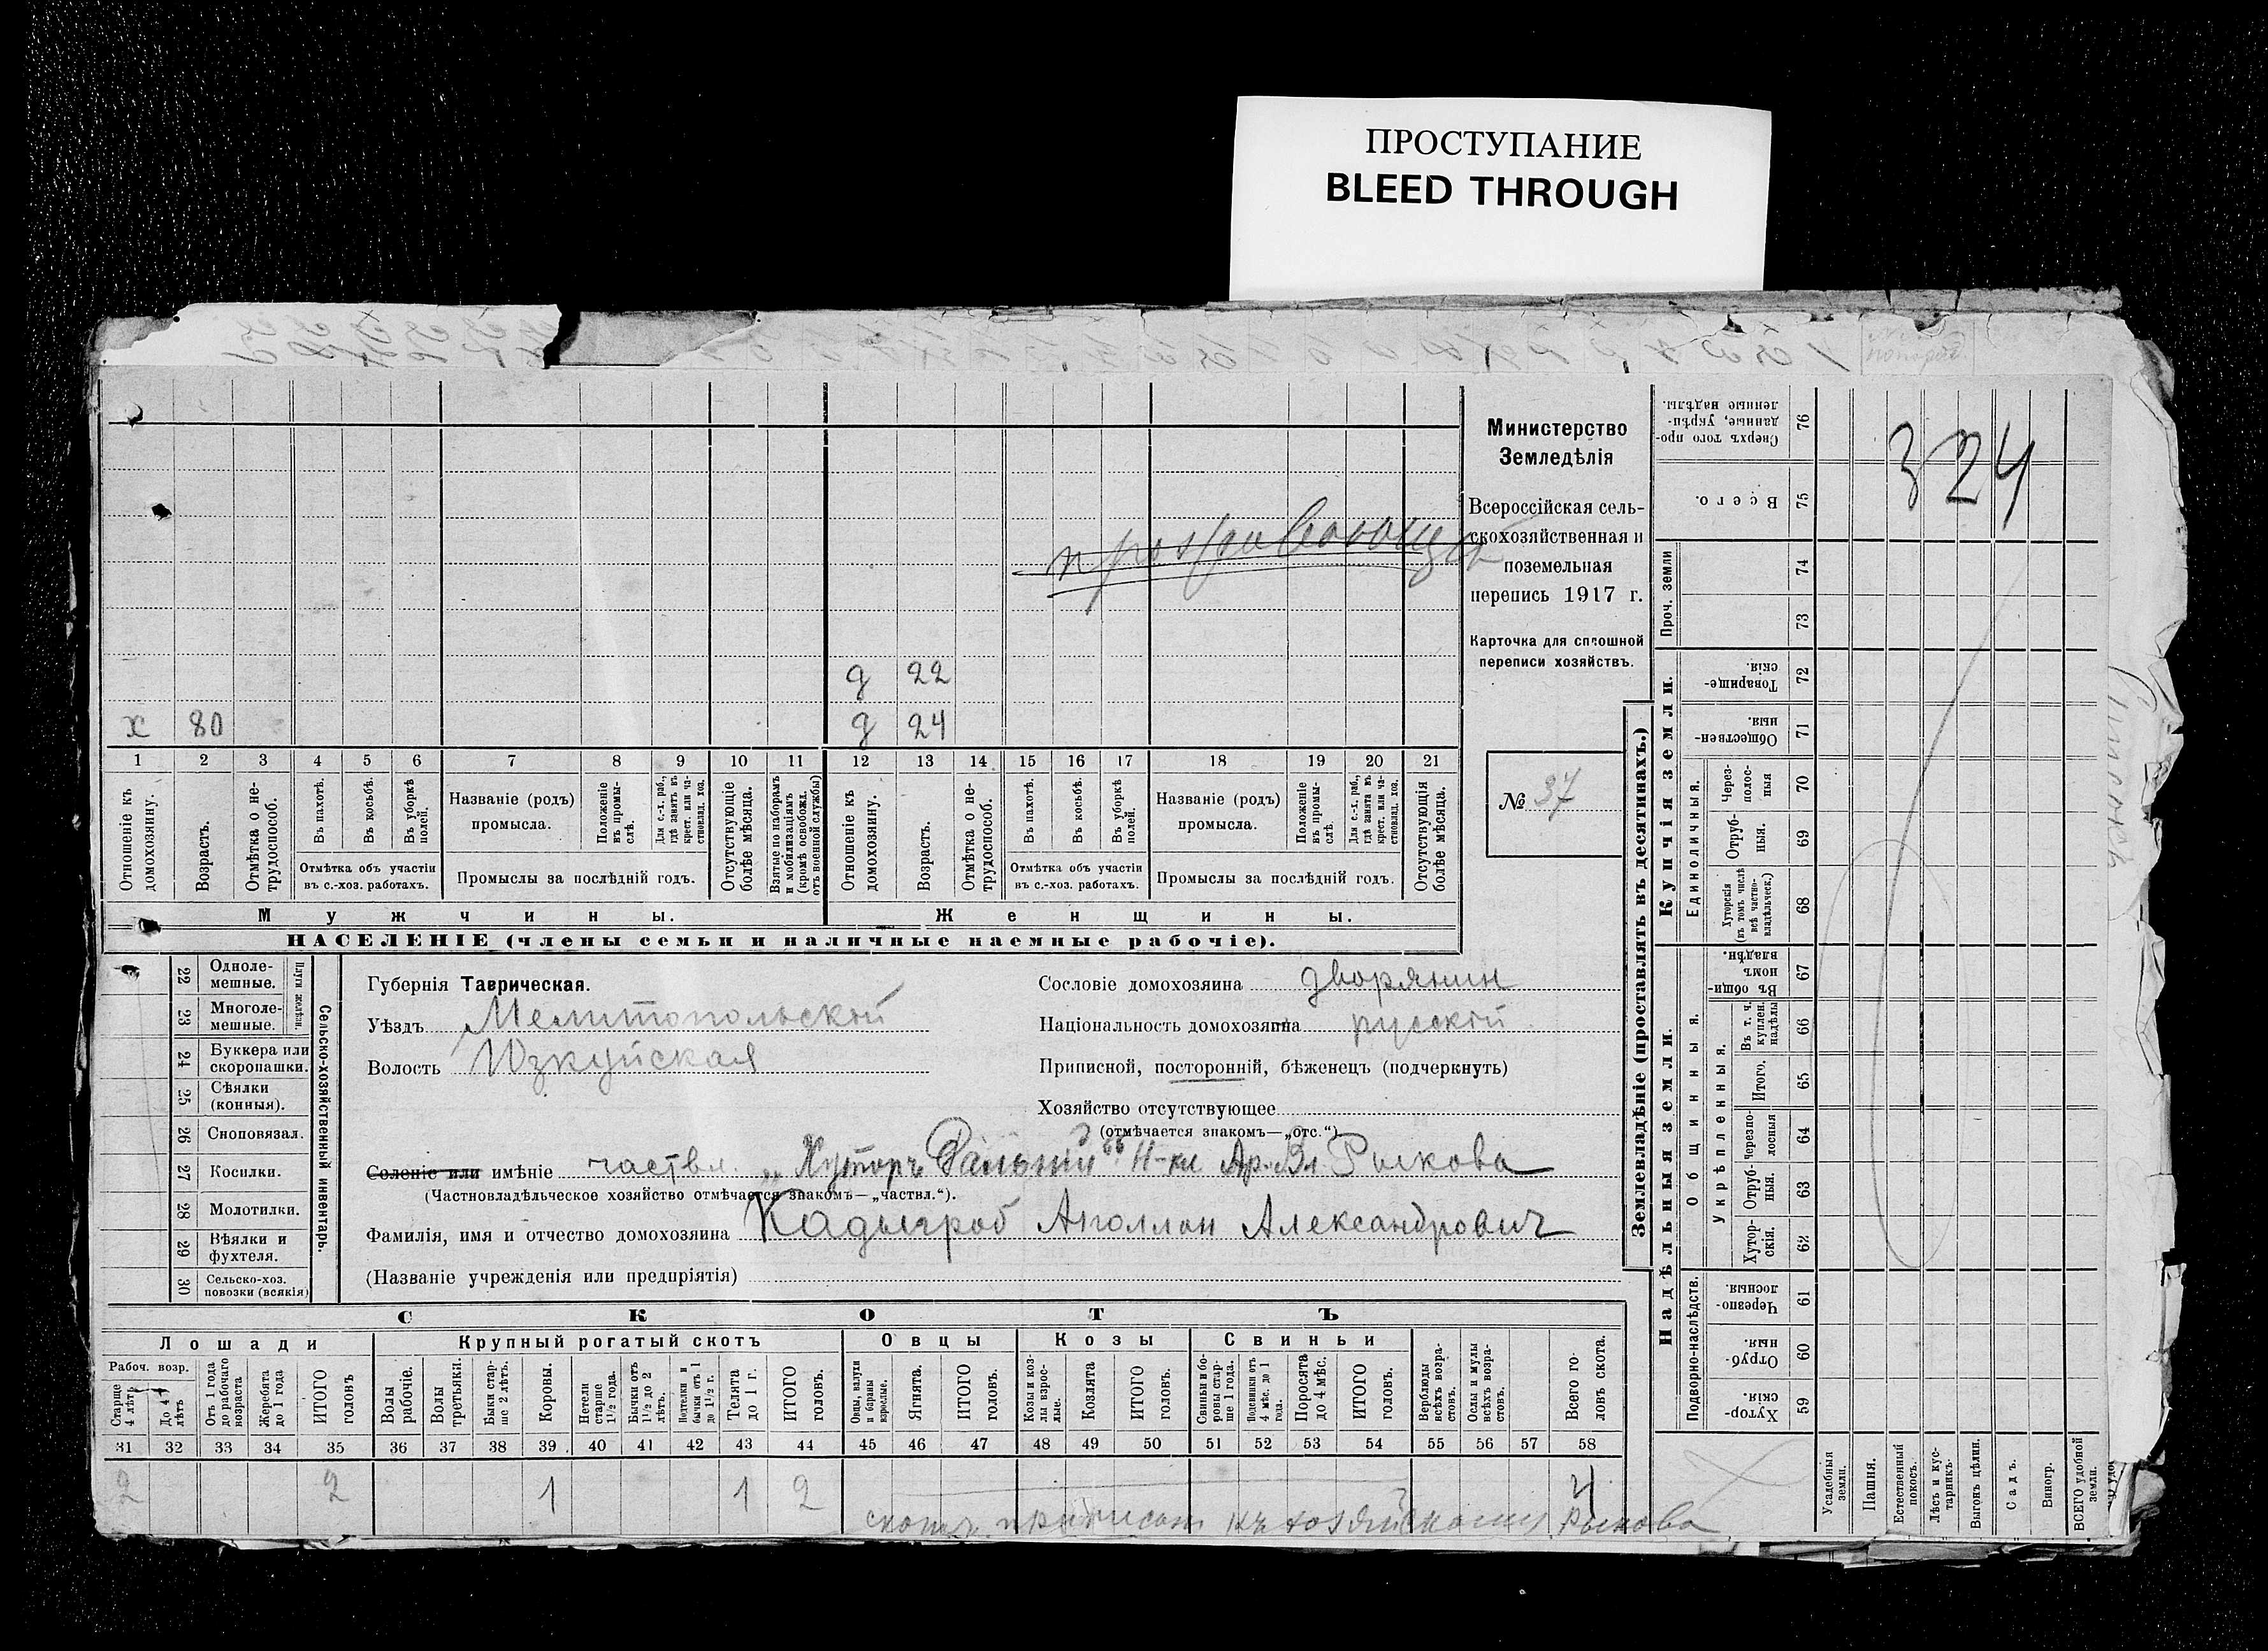 ПРОСТУПАНИЕ
BLEED THROUGH
324
Министерство
Земледѣлія
Всероссійская сель-
скохозяйственная и
поземельная
перепись 1917 г.
Карточка для сплошной
переписи хозяйствъ.
№ 37
д 22
х 80 д 24
1 2 3 4 5 6 7 8 9 10 11 12 13 14 15 16 17 18 19 20 21
Отношеніе къ домохозяину.
Возрастъ.
Отмѣтка о не-трудоспособ.
Въ пахотѣ.
Въ косьбѣ.
Въ уборкѣ полей.
Отмѣтка объ участіи
въ с.-хоз. работахъ.
Названіе (родъ)
промысла.
Положеніе въ промы-слѣ.
Для с.-х. раб., гдѣ занятъ въ крест. или ча-стновлад. хоз.
Промыслы за послѣдній годъ.
Отсутствующіе болѣе мѣсяца.
Взятые по наборамъ и мобилизаціямъ (кромѣ освобожд. отъ военной службы)
Отношеніе къ домохозяину.
Возрастъ.
Отмѣтка о не-трудоспособ.
Въ пахотѣ.
Въ косьбѣ.
Въ уборкѣ полей.
Отмѣтка объ участіи
въ с.-хоз. работахъ.
Названіе (родъ)
промысла.
Положеніе въ промы-слѣ.
Для с.-х. раб., гдѣ занята въ крест. или ча-стновлад. хоз.
Промыслы за послѣдній годъ.
Отсутствующія болѣе мѣсяца.
Мужчины. Женщины.
НАСЕЛЕНІЕ (члены семьи и наличные наемные рабочіе).
22 Одноле-мешные.
23 Многоле-мешные.
24 Буккера или скоропашки.
25 Сѣялки (конныя).
26 Сноповязал.
27 Косилки.
28 Молотилки.
29 Вѣялки и фухтеля.
30 Сельско-хоз. повозки (всякія)
Сельско-хозяйственный инвентарь.
Губернія Таврическая.
Уѣздъ Мелитопольскій
Волость Юзкуйская
Сословіе домохозяина дворянин
Національность домохозяина русскій
Приписной, посторонній, бѣженецъ (подчеркнуть)
Хозяйство отсутствующее
(отмѣчается знакомъ—„отс.“)
Селеніе или имѣніе частвл. „Хуторъ Рыкова
(Частновладѣльческое хозяйство отмѣчается знакомъ—„частвл.“).
Фамилія, имя и отчество домохозяина Кадыгроб Аполлон Александрович
(Названіе учрежденія или предпріятія)
СКОТЪ
Лошади Крупный рогатый скотъ Овцы Козы Свиньи
Рабоч. возр.
Старше 4 лѣтъ
До 4 лѣтъ
Отъ 1 года до рабочаго возраста
Жеребята до 1 года
ИТОГО головъ
Волы рабочіе.
Волы третьяки.
Быки стар-ше 2 лѣтъ.
Коровы.
Нетели старше 1½ года.
Бычки отъ 1½ до 2 лѣтъ.
Нетелки и бычки отъ 1 до 1½ г.
Телята до 1 г.
ИТОГО головъ.
Овцы, валухи и бараны взрослые.
Ягнята.
ИТОГО головъ.
Козы и коз-лы взрос-лые.
Козлята
ИТОГО головъ.
Свиньи и бо-ровы стар-ше 1 года.
Подсвинки отъ 4 мѣс. до 1 года.
Поросята до 4 мѣс.
ИТОГО головъ.
Верблюды всѣхъ возра-стовъ.
Ослы и мулы всѣхъ возра-стовъ.
Всего го-ловъ скота.
31 32 33 34 35 36 37 38 39 40 41 42 43 44 45 46 47 48 49 50 51 52 53 54 55 56 57 58
2 2 1 1 2 4
скотъ приписан къ хозяйскому Рыкова
Землевладѣніе (проставлять въ десятинахъ.)
Надѣльныя земли. Купчія земли.
Подворно-наслѣдств.
Общинныя.
Укрѣпленныя.
Единоличныя.
Проч. земли
Сверхъ того про-данные, укрѣп-ленные надѣлы. 76
Всего. 75
74
73
Товарище-скія. 72
Обществен-ныя. 71
Через-полос-ныя 70
Отруб-ныя. 69
Хуторскія (въ томъ числѣ всѣ частно-владѣльческ.) 68
Въ общи-номъ владѣн. 67
Въ т. ч. куплен. надѣлы 66
Итого. 65
черезпо-лосныя 64
Отруб-ныя. 63
Хутор-скія. 62
Черезпо-лосныя. 61
Отруб-ныя. 60
Хутор-скія. 59
Усадебныя земли.
Пашня.
Естественный покосъ.
Лѣсъ и кус-тарникъ.
Выгонъ цѣлин.
Садъ.
Виногр.
ВСЕГО удобной земли.